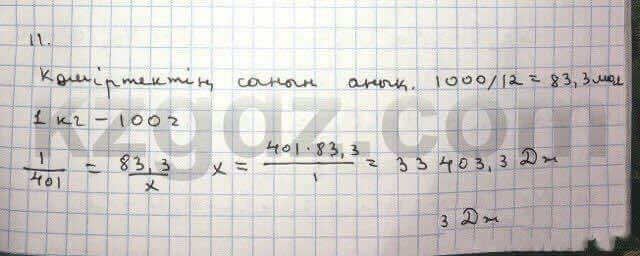 11.
Көміртектің санын анық. 1000/12 = 83,3 мол
1 кг – 100г
1/401 = 83,3/x x = 401·83,3/1 = 33403,3 Дж
3 Дж
kzgdz.com